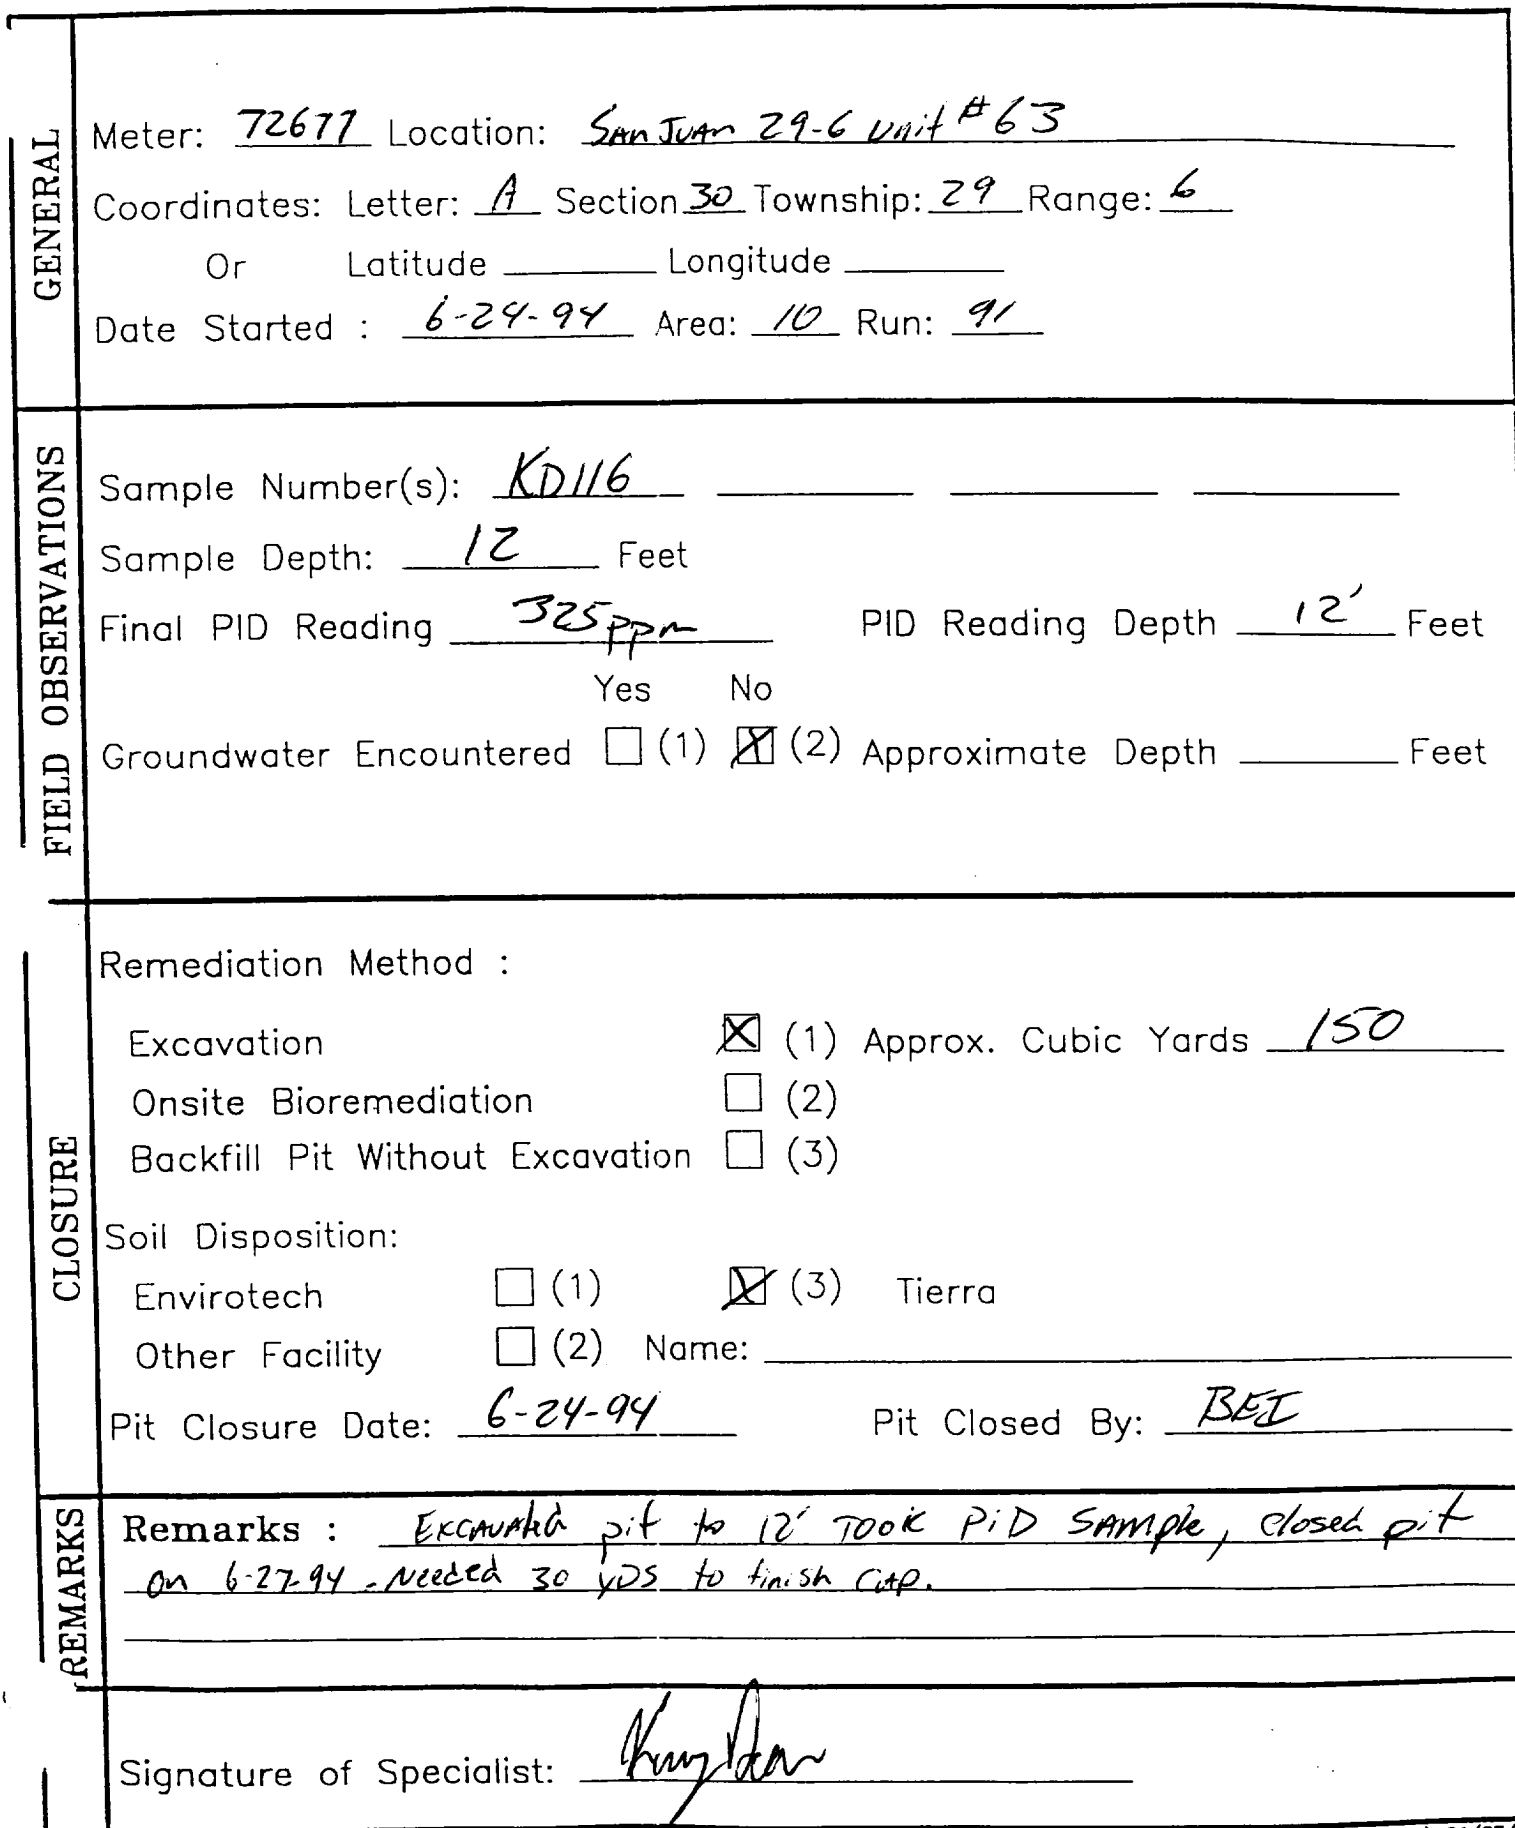 GENERAL
Meter: 72677 Location: SAN JUAN 29-6 Unit #63
Coordinates: Letter: A Section 30 Township: 29 Range: 6
Or Latitude Longitude
Date Started : 6-24-94 Area: 10 Run: 91
FIELD OBSERVATIONS
Sample Number(s): KD116
Sample Depth: 12 Feet
Final PID Reading 325ppm PID Reading Depth 12' Feet
Yes No
Groundwater Encountered (1) X (2) Approximate Depth Feet
CLOSURE
Remediation Method :
Excavation X (1) Approx. Cubic Yards 150
Onsite Bioremediation (2)
Backfill Pit Without Excavation (3)
Soil Disposition:
Envirotech (1) X (3) Tierra
Other Facility (2) Name:
Pit Closure Date: 6-24-94 Pit Closed By: BEI
REMARKS
Remarks : EXCAVAted pit to 12' TOOK PiD SAMple, closed pit
on 6-27-94 - Needed 30 YDS to finish CAP.
Signature of Specialist: